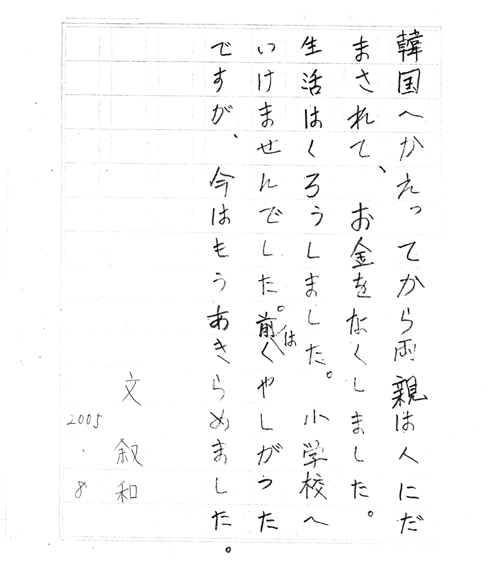 韓国へかえってから両親は人にだ
まされて、お金をなくしました。
生活はくろうしました。小学校へ
いけませんでした。前はくやしがった
ですが、今はもうあきらめました。
文 叙和
2005・8